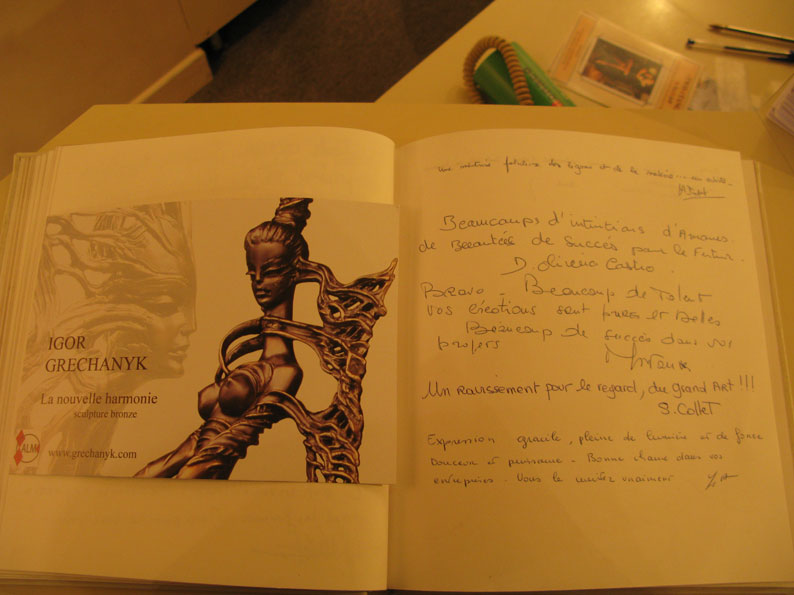 IGOR
GRECHANYK
La nouvelle harmonie
sculpture bronze
ALMA
www.grechanyk.com
Une maîtrise des lignes et de la matière
Beaucoups d'intintions d'Amours.
de Beautées de Succès pour le Futur.
D. Oliveira Castro.
BRAVO - Beaucoup de Talent
vos créations sont pures et Belles
Beaucoup de succès dans vos
projets
Un ravissement pour le regard, du grand Art !!!
S. Collet
Expression gracile, pleine de lumière et de force
Douceur et puissance - Bonne chance dans vos
entreprises. Vous le méritez vraiment